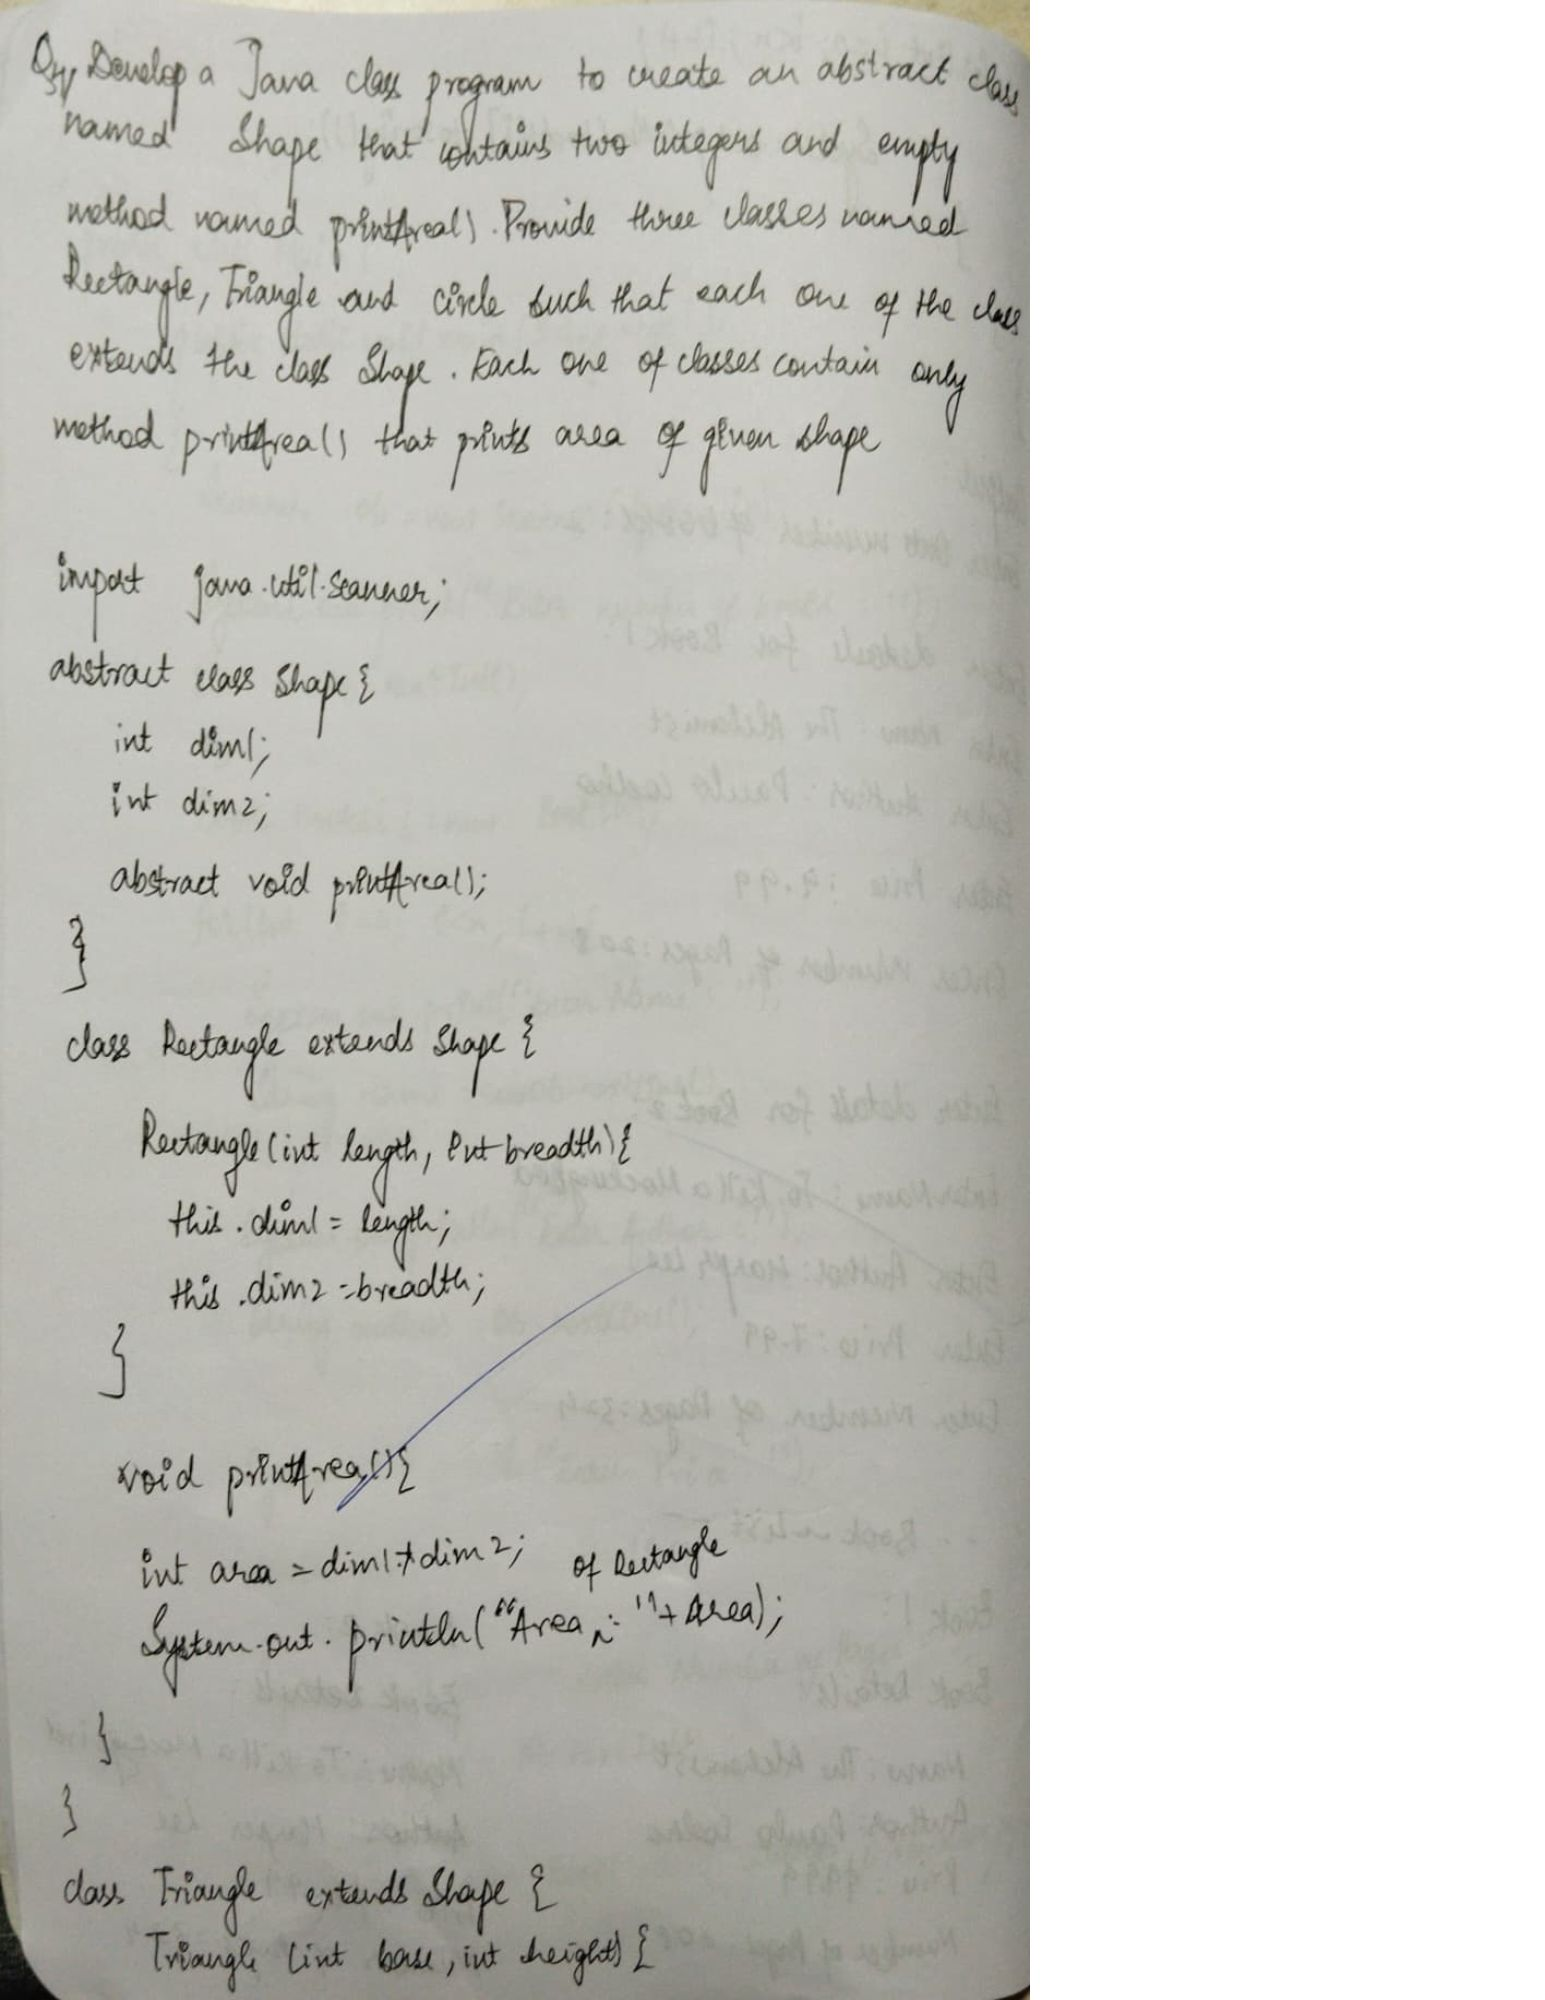 Q3) Develop a Java class program to create an abstract class
named Shape that contains two integers and empty
method named printArea(). Provide three classes named
Rectangle, Triangle and circle such that each one of the class
extends the class Shape. Each one of classes contain only
method printArea() that prints area of given shape
import java.util.Scanner;
abstract class Shape {
int dim1;
int dim2;
abstract void printArea();
}
class Rectangle extends Shape {
Rectangle (int length, int breadth) {
this.dim1 = length;
this.dim2 = breadth;
}
void printArea() {
int area = dim1 * dim2;
System.out.println("Area of Rectangle: " + Area);
}
}
class Triangle extends Shape {
Triangle (int base, int height) {